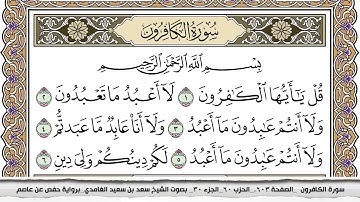 سورة الكافرون
بسم الله الرحمن الرحيم
قُلْ يَٰٓأَيُّهَا ٱلْكَٰفِرُونَ ١ لَآ أَعْبُدُ مَا تَعْبُدُونَ ٢
وَلَآ أَنتُمْ عَٰبِدُونَ مَآ أَعْبُدُ ٣ وَلَآ أَنَا۠ عَابِدٌ مَّا عَبَدتُّمْ ٤
وَلَآ أَنتُمْ عَٰبِدُونَ مَآ أَعْبُدُ ٥ لَكُمْ دِينُكُمْ وَلِىَ دِينِ ٦
سورة الكافرون _الصفحة ٦٠٣_ الحزب ٦٠_ الجزء ٣٠_ بصوت الشيخ سعد بن سعيد الغامدي_برواية حفص عن عاصم